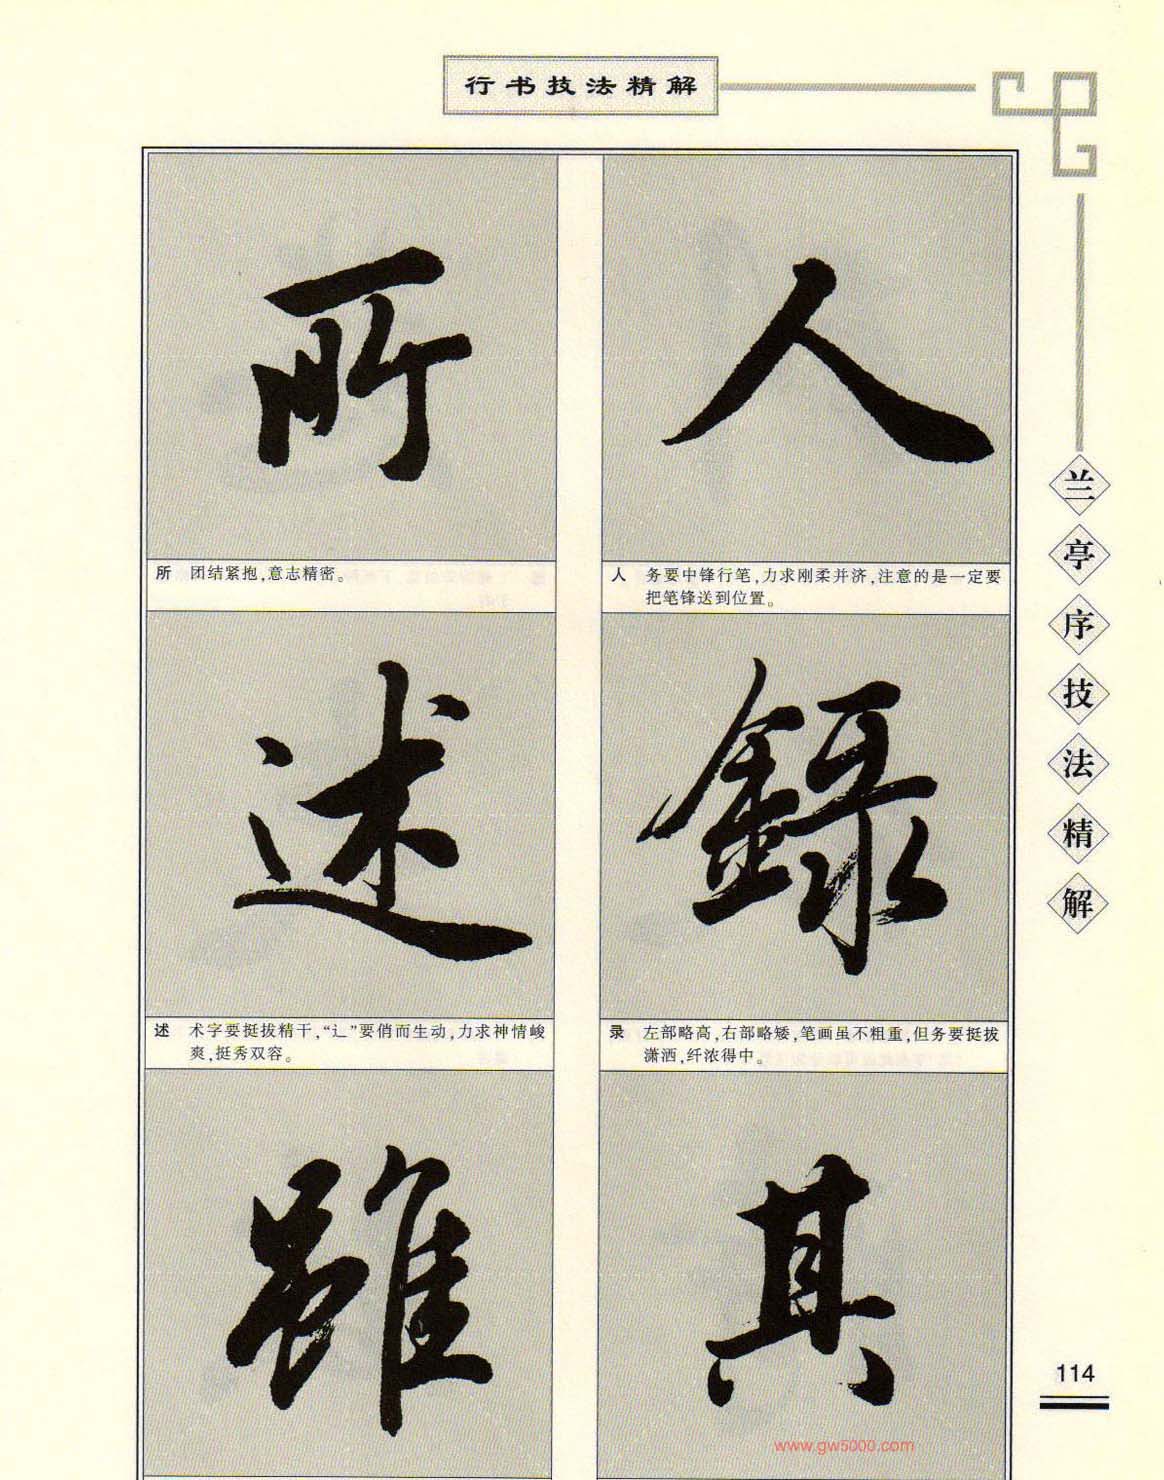 行书技法精解
人
所
人 务要中锋行笔,力求刚柔并济,注意的是一定要
把笔锋送到位置。
所 团结紧抱,意志精密。
録
述
录 左部略高,右部略矮,笔画虽不粗重,但务要挺拔
潇洒,纤浓得中。
述 术字要挺拔精干,“辶”要俏而生动,力求神情峻
爽,挺秀双容。
其
雖
兰亭序技法精解
114
www.gw5000.com